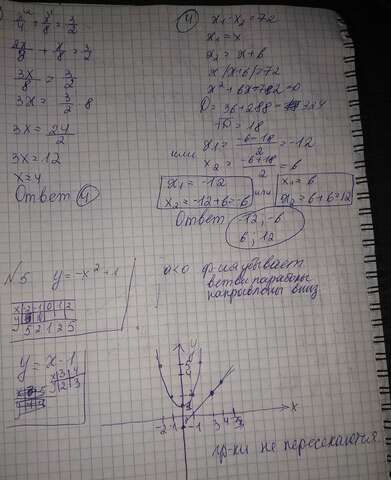 x/4 + x/8 = 3/2
2x/8 + x/8 = 3/2
3x/8 = 3/2
3x = 3/2 · 8
3x = 24/2
3x = 12
x = 4
Ответ 4
4
x₁·x₂ = 72
x₁ = x
x₂ = x+6
x(x+6)=72
x²+6x-72=0
D = 36+288 = 324
√D = 18
x₁ = (-6-18)/2 = -12
или
x₂ = (-6+18)/2 = 6
x₁ = -12
x₂ = -12+6 = -6
или
x₁ = 6
x₂ = 6+6=12
Ответ
-12; -6
6; 12
№5 y = -x²+1
x -2 -1 0 1 2
y
5 2 1 2 5
a<0 ф-ия убывает
ветви параболы
направлены вниз
y = x-1
x 3 4
2 3
y
5
4
x
-2 -1 1 3 4 5
гр-ки не пересекаются